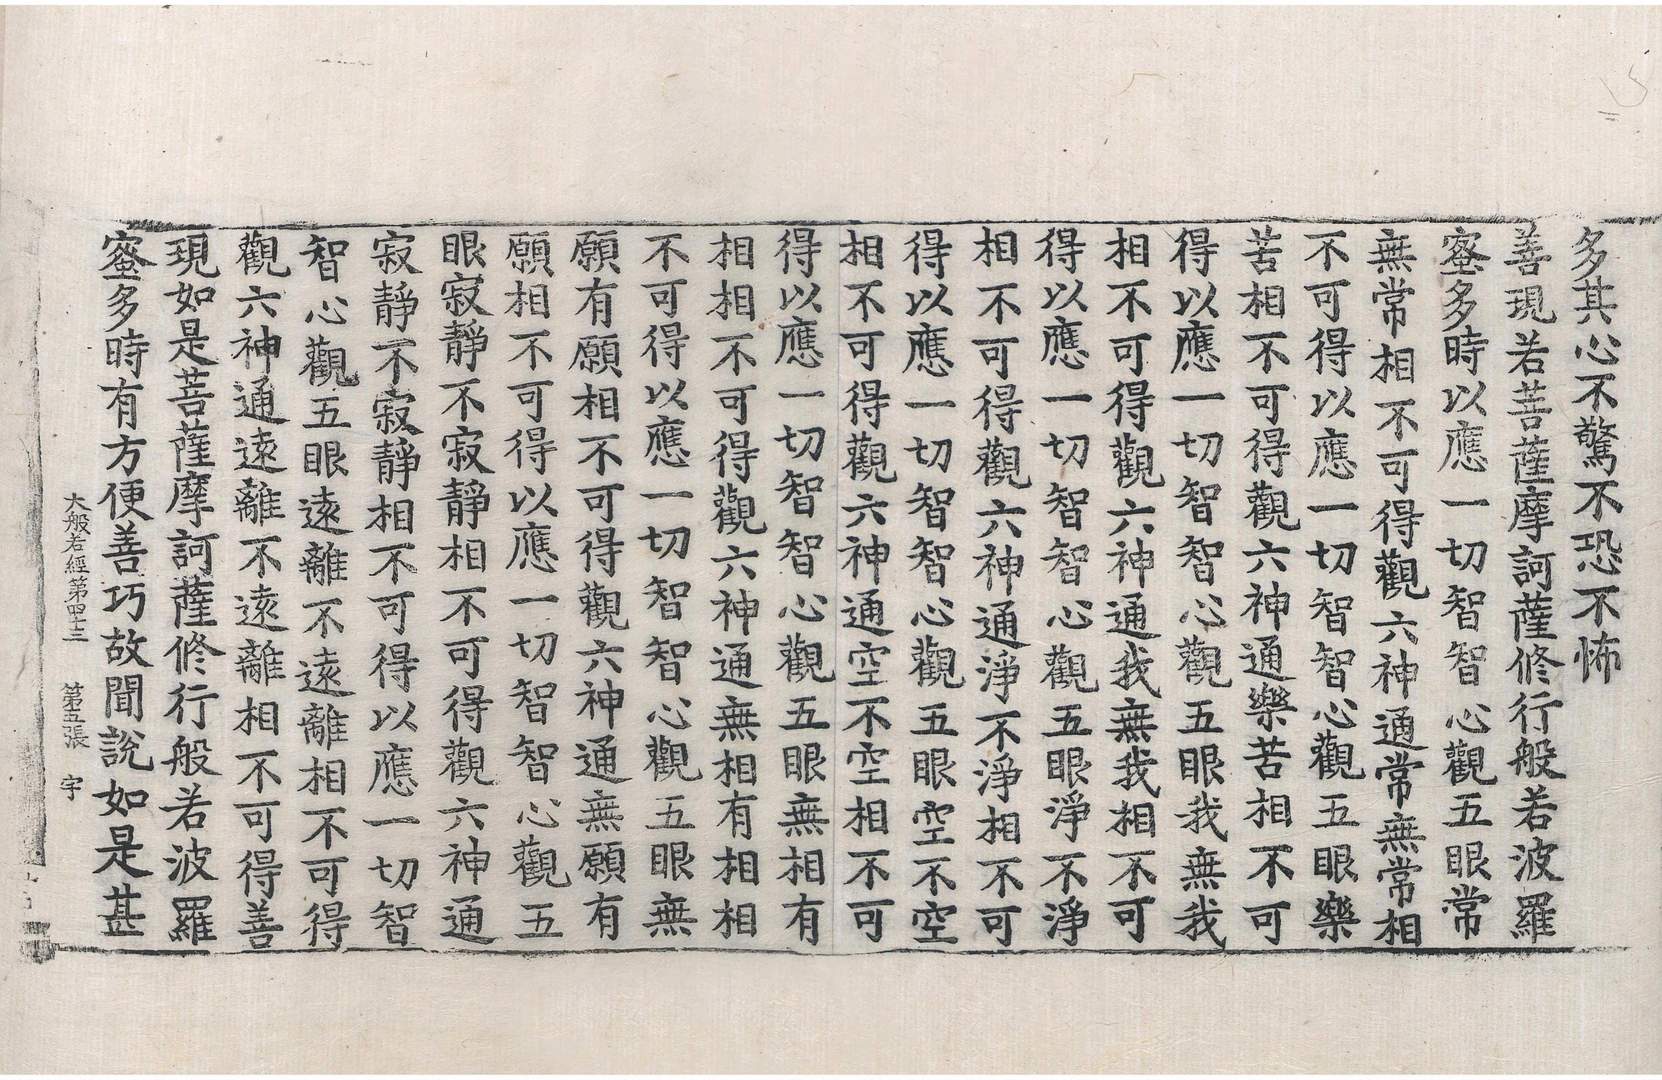 多其心不驚不恐不怖
善現若菩薩摩訶薩修行般若波羅
蜜多時以應一切智智心觀五眼常
無常相不可得觀六神通常無常相
不可得以應一切智智心觀五眼樂
苦相不可得觀六神通樂苦相不可
得以應一切智智心觀五眼我無我
相不可得觀六神通我無我相不可
得以應一切智智心觀五眼淨不淨
相不可得觀六神通淨不淨相不可
得以應一切智智心觀五眼空不空
相不可得觀六神通空不空相不可
得以應一切智智心觀五眼無相有
相相不可得觀六神通無相有相相
不可得以應一切智智心觀五眼無
願有願相不可得觀六神通無願有
願相不可得以應一切智智心觀五
眼寂靜不寂靜相不可得觀六神通
寂靜不寂靜相不可得以應一切智
智心觀五眼遠離不遠離相不可得
觀六神通遠離不遠離相不可得善
現如是菩薩摩訶薩修行般若波羅
蜜多時有方便善巧故聞說如是甚
大般若經第四十三 第五張 宇